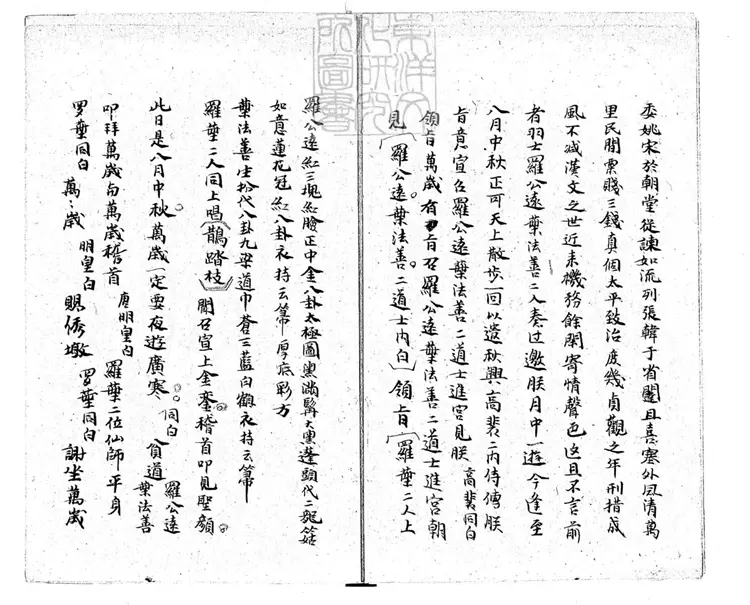 委姚宋於朝堂從諫如流列張韓于省闥且喜塞外风清萬
里民間粟賤三錢真個太平致治庶幾貞觀之年刑措成
風不减漢文之世近来機務餘閑寄情聲色这且不言前
者羽士羅公遠葉法善二人奏过邀朕月中一遊今逢至
八月中秋正可天上散步一回以遣秋興高裴二内侍傳朕
旨意宣召羅公遠葉法善二道士進宫見朕 高裴同白
領旨萬歲有旨召羅公遠葉法善二道士進宫朝
見 羅公遠葉法善二道士内白 領旨 羅葉二人上
羅公遠紅三塊紅臉正中金八卦太極圖黑满髯大黑蓬頭代二龍箍
如意蓮花冠紅八卦衣持云帚厚底彩方
葉法善生扮代八卦九梁道巾蒼三藍白鶴衣持云帚
羅葉二人同上唱 鵲踏枝 聞召宣上金鑾稽首叩見聖顏
此日是八月中秋萬歲一定要夜遊廣寒 同白 貧道 羅公遠 葉法善
叩拜萬歲白萬歲稽首 唐明皇白 羅葉二位仙師平身
罗葉同白 萬〻歲 明皇白 賜綉墩 罗葉同白 謝坐萬歲